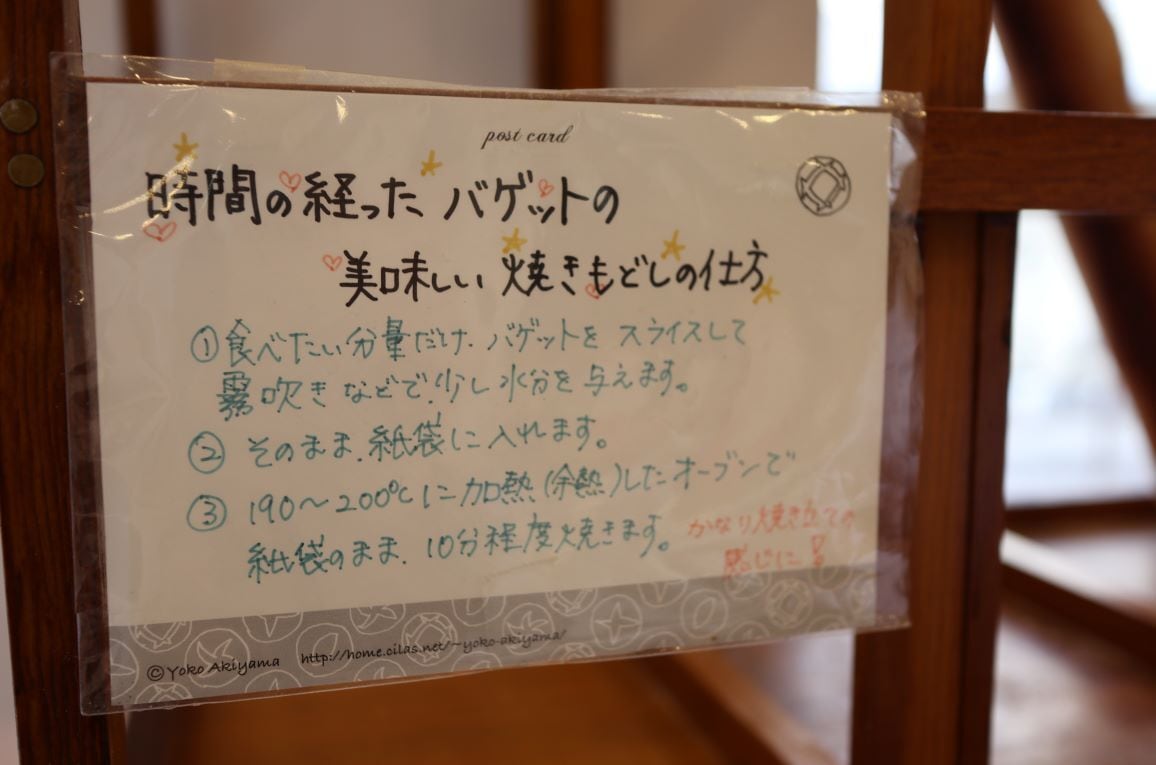 post card
時間の経ったバゲットの
美味しい焼きもどしの仕方
①食べたい分量だけ、バゲットをスライスして
霧吹きなどで、少し水分を与えます。
②そのまま、紙袋に入れます。
③190〜200℃に加熱(余熱)したオーブンで
紙袋のまま、10分程度焼きます。
かなり焼き立ての
感じに!
©Yoko Akiyama http://home.oilas.net/~yoko-akiyama/